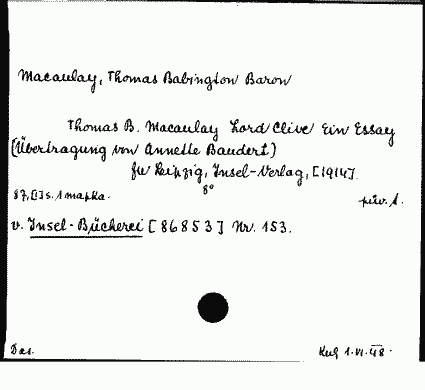 Macaulay, Thomas Babington Baron
Thomas B. Macaulay Lord Clive Ein Essay
(Übertragung von Annette Baudert)
Leipzig, Insel-Verlag, [1914].
87,[1] s. 1 mapka. 8°
v. Insel-Bücherei [86853] Nr. 153.
Dar. 1.VI.48.